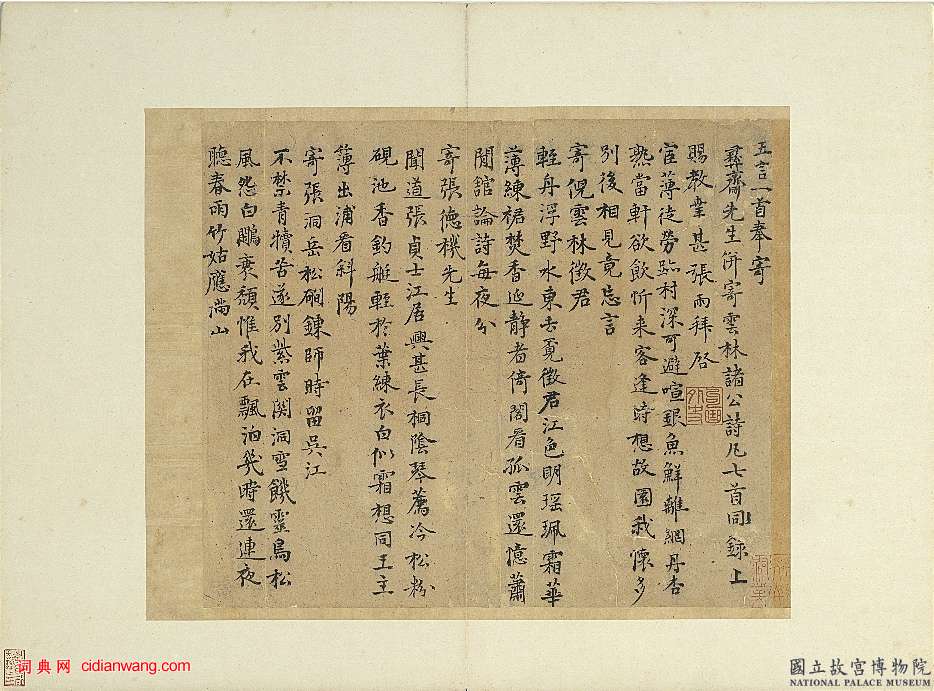 五言一首奉寄
彝齋先生併寄雲林諸公詩凡七首同錄上
賜教業甚張雨拜啓
宦薄徒勞踪村深可避喧銀魚鮮離網丹杏
熟當軒欲飲忻來客逢時想故園我懷多
別後相見竟忘言
寄倪雲林徵君
輕舟浮野水東去覓徵君江色明瑶珮霜華
薄練裙焚香延静者倚閣看孤雲還憶蕭
閒館論詩每夜分
寄張德機先生
聞道張貞士江居興甚長桐陰琴薦冷松粉
硯池香釣艇輕於葉練衣白似霜想同王主
簿出浦看斜陽
寄張洞岳松磵鍊師時留吳江
不禁青犢苦遂別紫雲関洞雪饑靈鳥松
風怨白鷴衰顏惟我在飄泊幾時還連夜
聽春雨竹姑應滿山
词典网 cidianwang.com
國立故宮博物院
NATIONAL PALACE MUSEUM